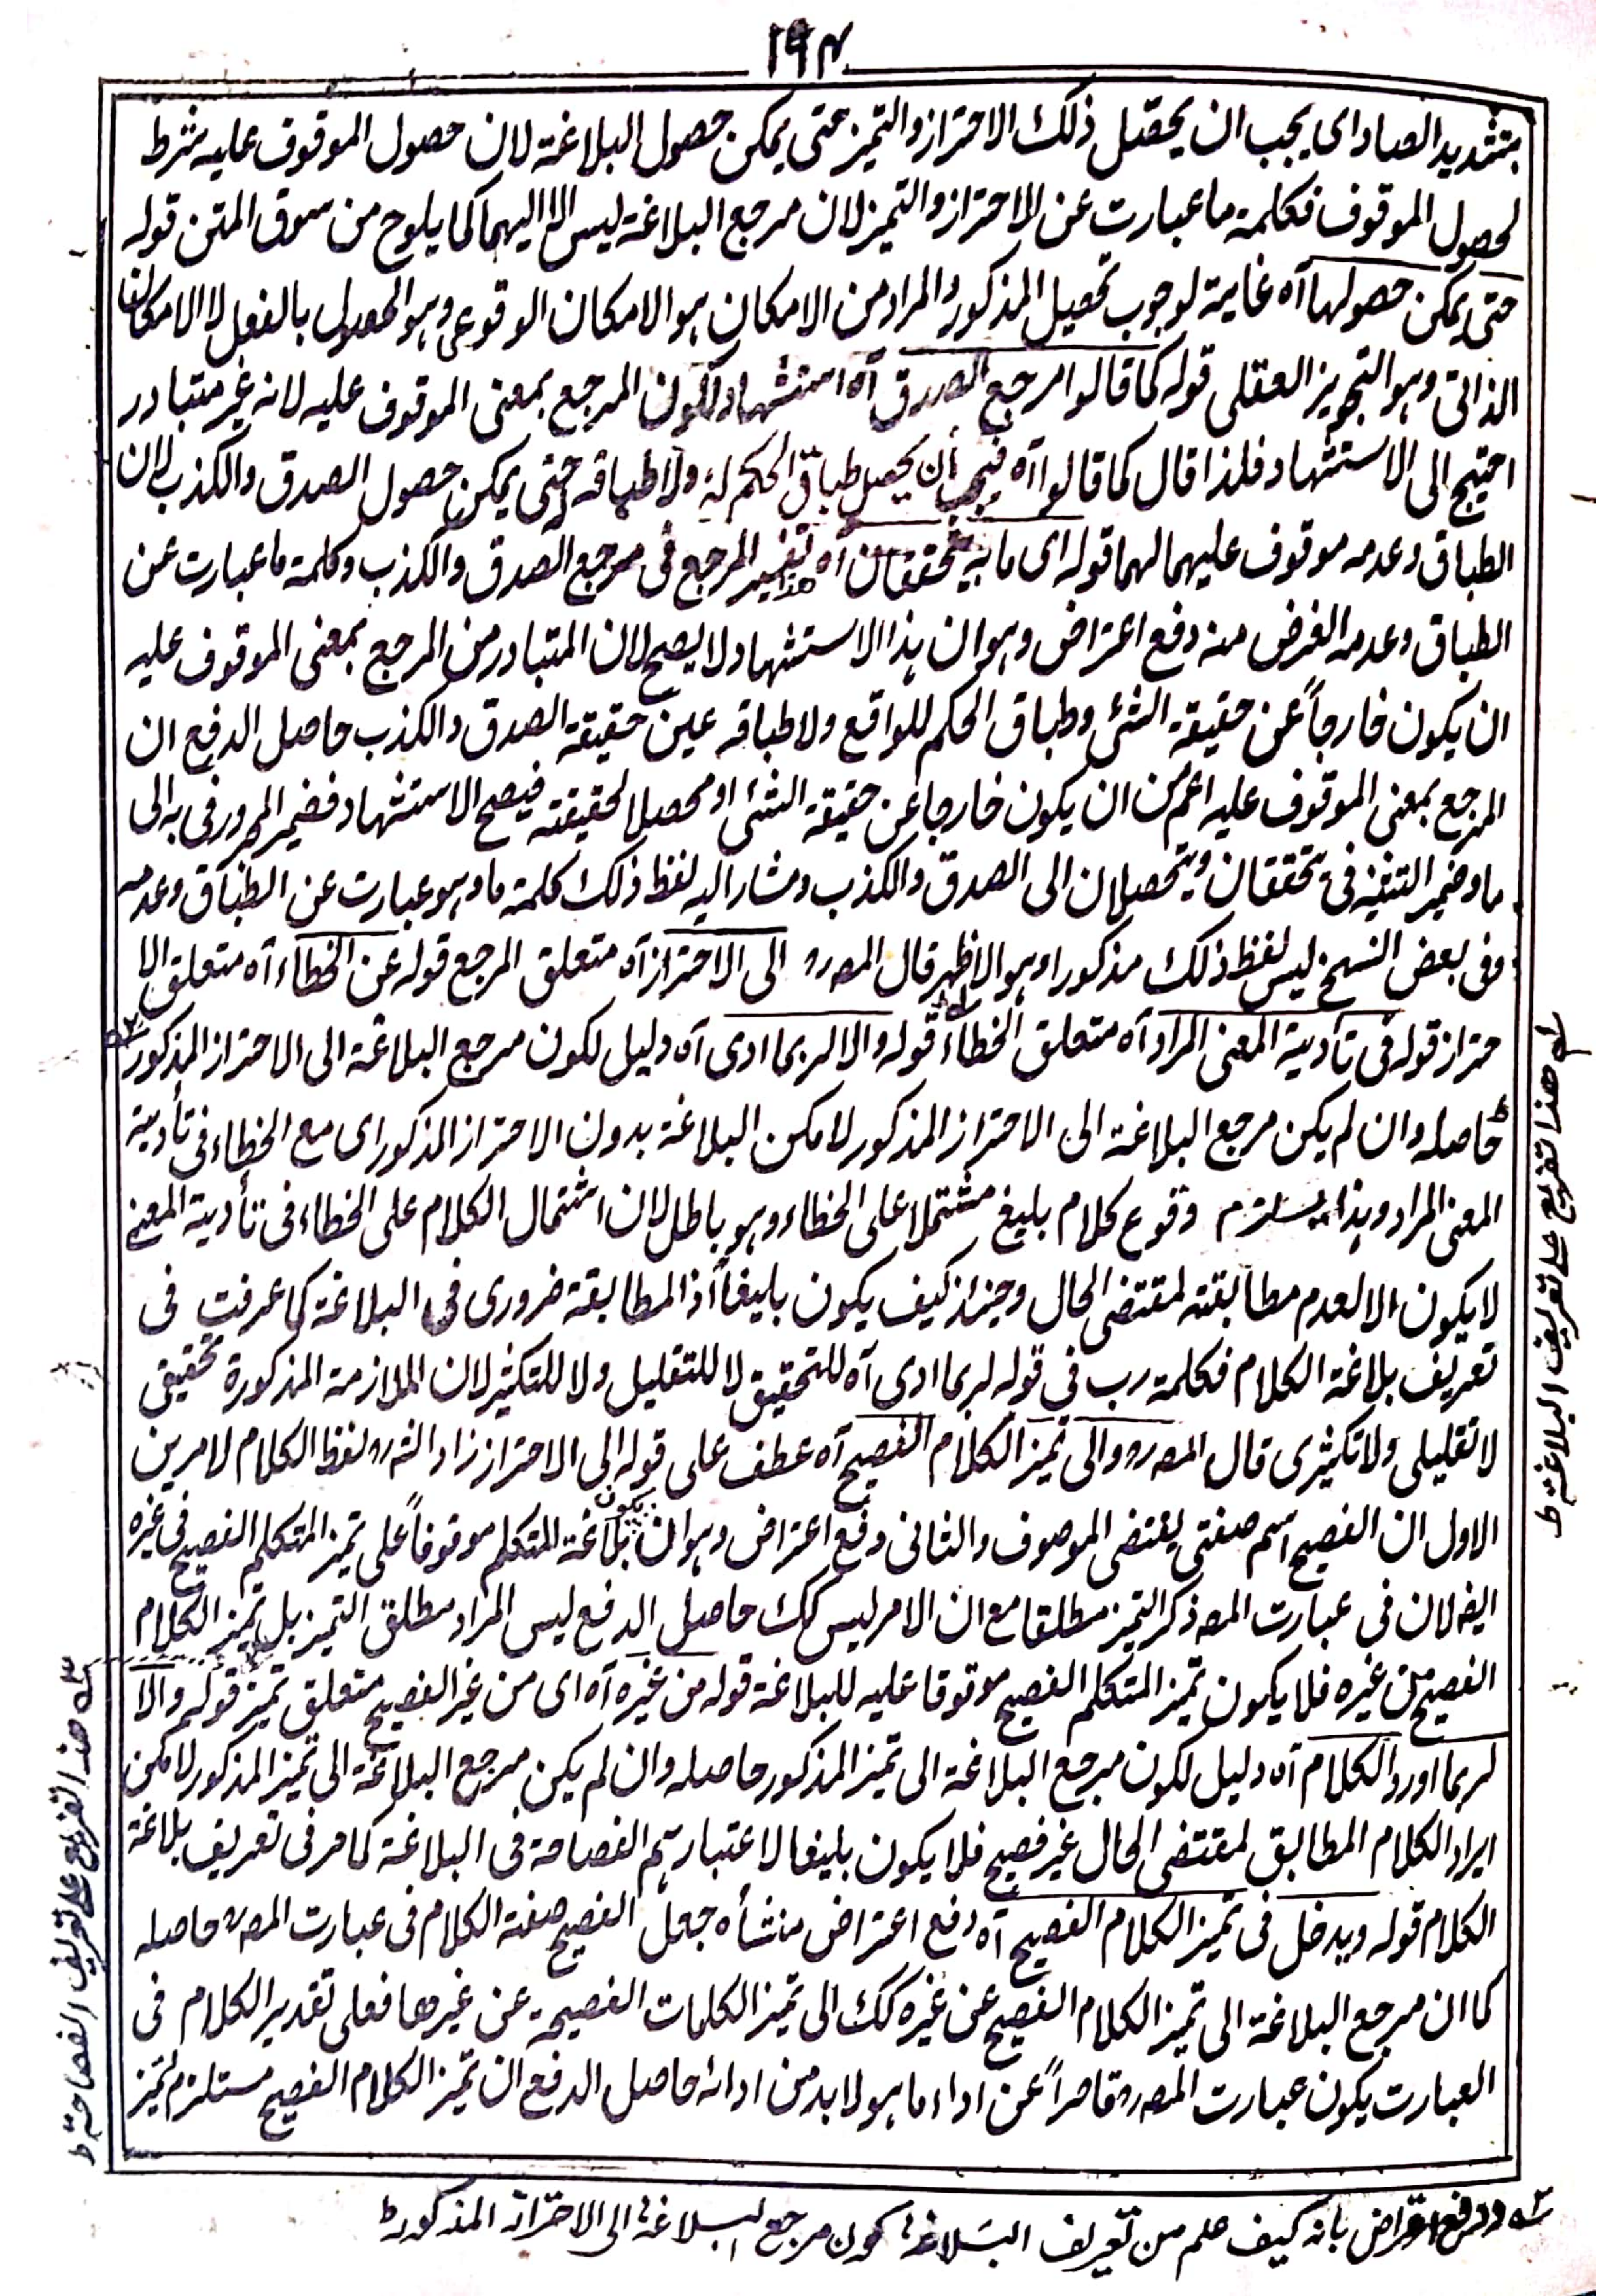 ۱۹۴
بتشدید الصاد ای یجب ان یحصّل ذلک الاحتراز و التمیز حتی یمکن حصول البلاغة لان حصول الموقوف علیه شرط
لحصول الموقوف فکلمة ما عبارت عن الاحتراز و التمیز لان مرجع البلاغة لیس الا الیهما کما یلوح من سوق المتن قوله
حتی یمکن حصولها آه غایة لوجوب تحصیل المذکور و المراد من الامکان ہو الامکان الوقوعی وہو الحصول بالفعل لا الامکان
الذاتی وہو التجویز العقلی قوله کما قالوا مرجع الصدق آه استشهاد لکون المرجع بمعنی الموقوف علیه لانه غیر متبادر
احتیج الی الاستشهاد فلذا قال کما قالوا آه فیجب أن یحصل طباق الحکم له ولا طباقه حتی یمکن حصول الصدق والکذب لان
الطباق وعدمه موقوف علیهما لهما قوله ای ما به یتحققان آه هذا تفسیر المرجع فی مرجع الصدق والکذب وکلمة ما عبارت عن
الطباق وعدمه الغرض منه دفع اعتراض وہو ان ہذا الاستشهاد لا یصح لان المتبادر من المرجع بمعنی الموقوف علیه
ان یکون خارجاً عن حقیقة الشئ وطباق الحکم للواقع ولا طباقه عین حقیقة الصدق والکذب حاصل الدفع ان
المرجع بمعنی الموقوف علیه اعم من ان یکون خارجا عن حقیقة الشئ او محصلا لحقیقته فیصح الاستشهاد فضمیر المجرور فی به الی
ما وضمیر التثنیه فی یتحققان ویتحصلان الی الصدق والکذب ومشار الیه لفظ ذلک کلمة ما وہو عبارت عن الطباق وعدمه
وفی بعض النسخ لیس لفظ ذلک مذکورا وہو الاظهر قال المصرہ الی الاحتراز آه متعلق المرجع قوله عن الخطاء آه متعلق الا
حتراز قوله فی تأدیة المعنی المراد آه متعلق الخطاء قوله والا لربما ادی آه دلیل لکون مرجع البلاغة الی الاحتراز المذکور
حاصله وان لم یکن مرجع البلاغة الی الاحتراز المذکور لامکن البلاغة بدون الاحتراز المذکور ای مع الخطاء فی تأدیة
المعنی المراد وہذا یستلزم وقوع کلام بلیغ مشتملا علی الخطاء وہو باطل لان اشتمال الکلام علی الخطاء فی تأدیة المعنی
لا یکون الا لعدم مطابقته لمقتضی الحال وحینئذ کیف یکون بلیغاً اذ المطابقة ضروری فی البلاغة کما عرفت فی
تعریف بلاغة الکلام فکلمة رب فی قوله لربما ادی آه للتحقیق لا للتقلیل ولا للتکثیر لان الملازمة المذکورة تحقیقی
لا تقلیلی ولا تکثیری قال المصرہ والی تمیز الکلام الفصیح آه عطف علی قوله الی الاحتراز زاد الشرہ لفظ الکلام لامرین
الاول ان الفصیح اسم صفتی یقتضی الموصوف والثانی دفع اعتراض وہو ان یکون بلاغة المتکلم موقوفاً علی تمیز المتکلم الفصیح فی غیرہ
ایضا لان فی عبارت المصہ ذکر التمیز مطلقا مع ان الامر لیس کک حاصل الدفع لیس المراد مطلق التمیز بل تمیز الکلام
الفصیح من غیرہ فلا یکون تمیز المتکلم الفصیح موقوفا علیه للبلاغة قوله من غیرہ آه ای من غیر الفصیح متعلق تمیز قوله والا
لربما اورد الکلام آه دلیل لکون مرجع البلاغة الی تمیز المذکور حاصله وان لم یکن مرجع البلاغة الی تمیز المذکور لامکن
ایراد الکلام المطابق لمقتضی الحال غیر فصیح فلا یکون بلیغا لاعتبارہم الفصاحة فی البلاغة کما مر فی تعریف بلاغة
الکلام قوله ویدخل فی تمیز الکلام الفصیح آه دفع اعتراض منشأہ جعل الفصیح صفة الکلام فی عبارت المصرہ حاصله
کما ان مرجع البلاغة الی تمیز الکلام الفصیح عن غیرہ کک الی تمیز الکلمات الفصیحة عن غیرها فعلی تقدیر الکلام فی
العبارت یکون عبارت المصرہ قاصراً عن اداء ما ہو لا بد من ادائه حاصل الدفع ان تمیز الکلام الفصیح مستلزم لتمیز
هذا تفریع علی تعریف البلاغة ط
هذا تفریع علی تعریف الفصاحة ط
دفع اعتراض بانه کیف علم من تعریف البلاغة کون مرجع البلاغة الی الاحتراز المذکور ط